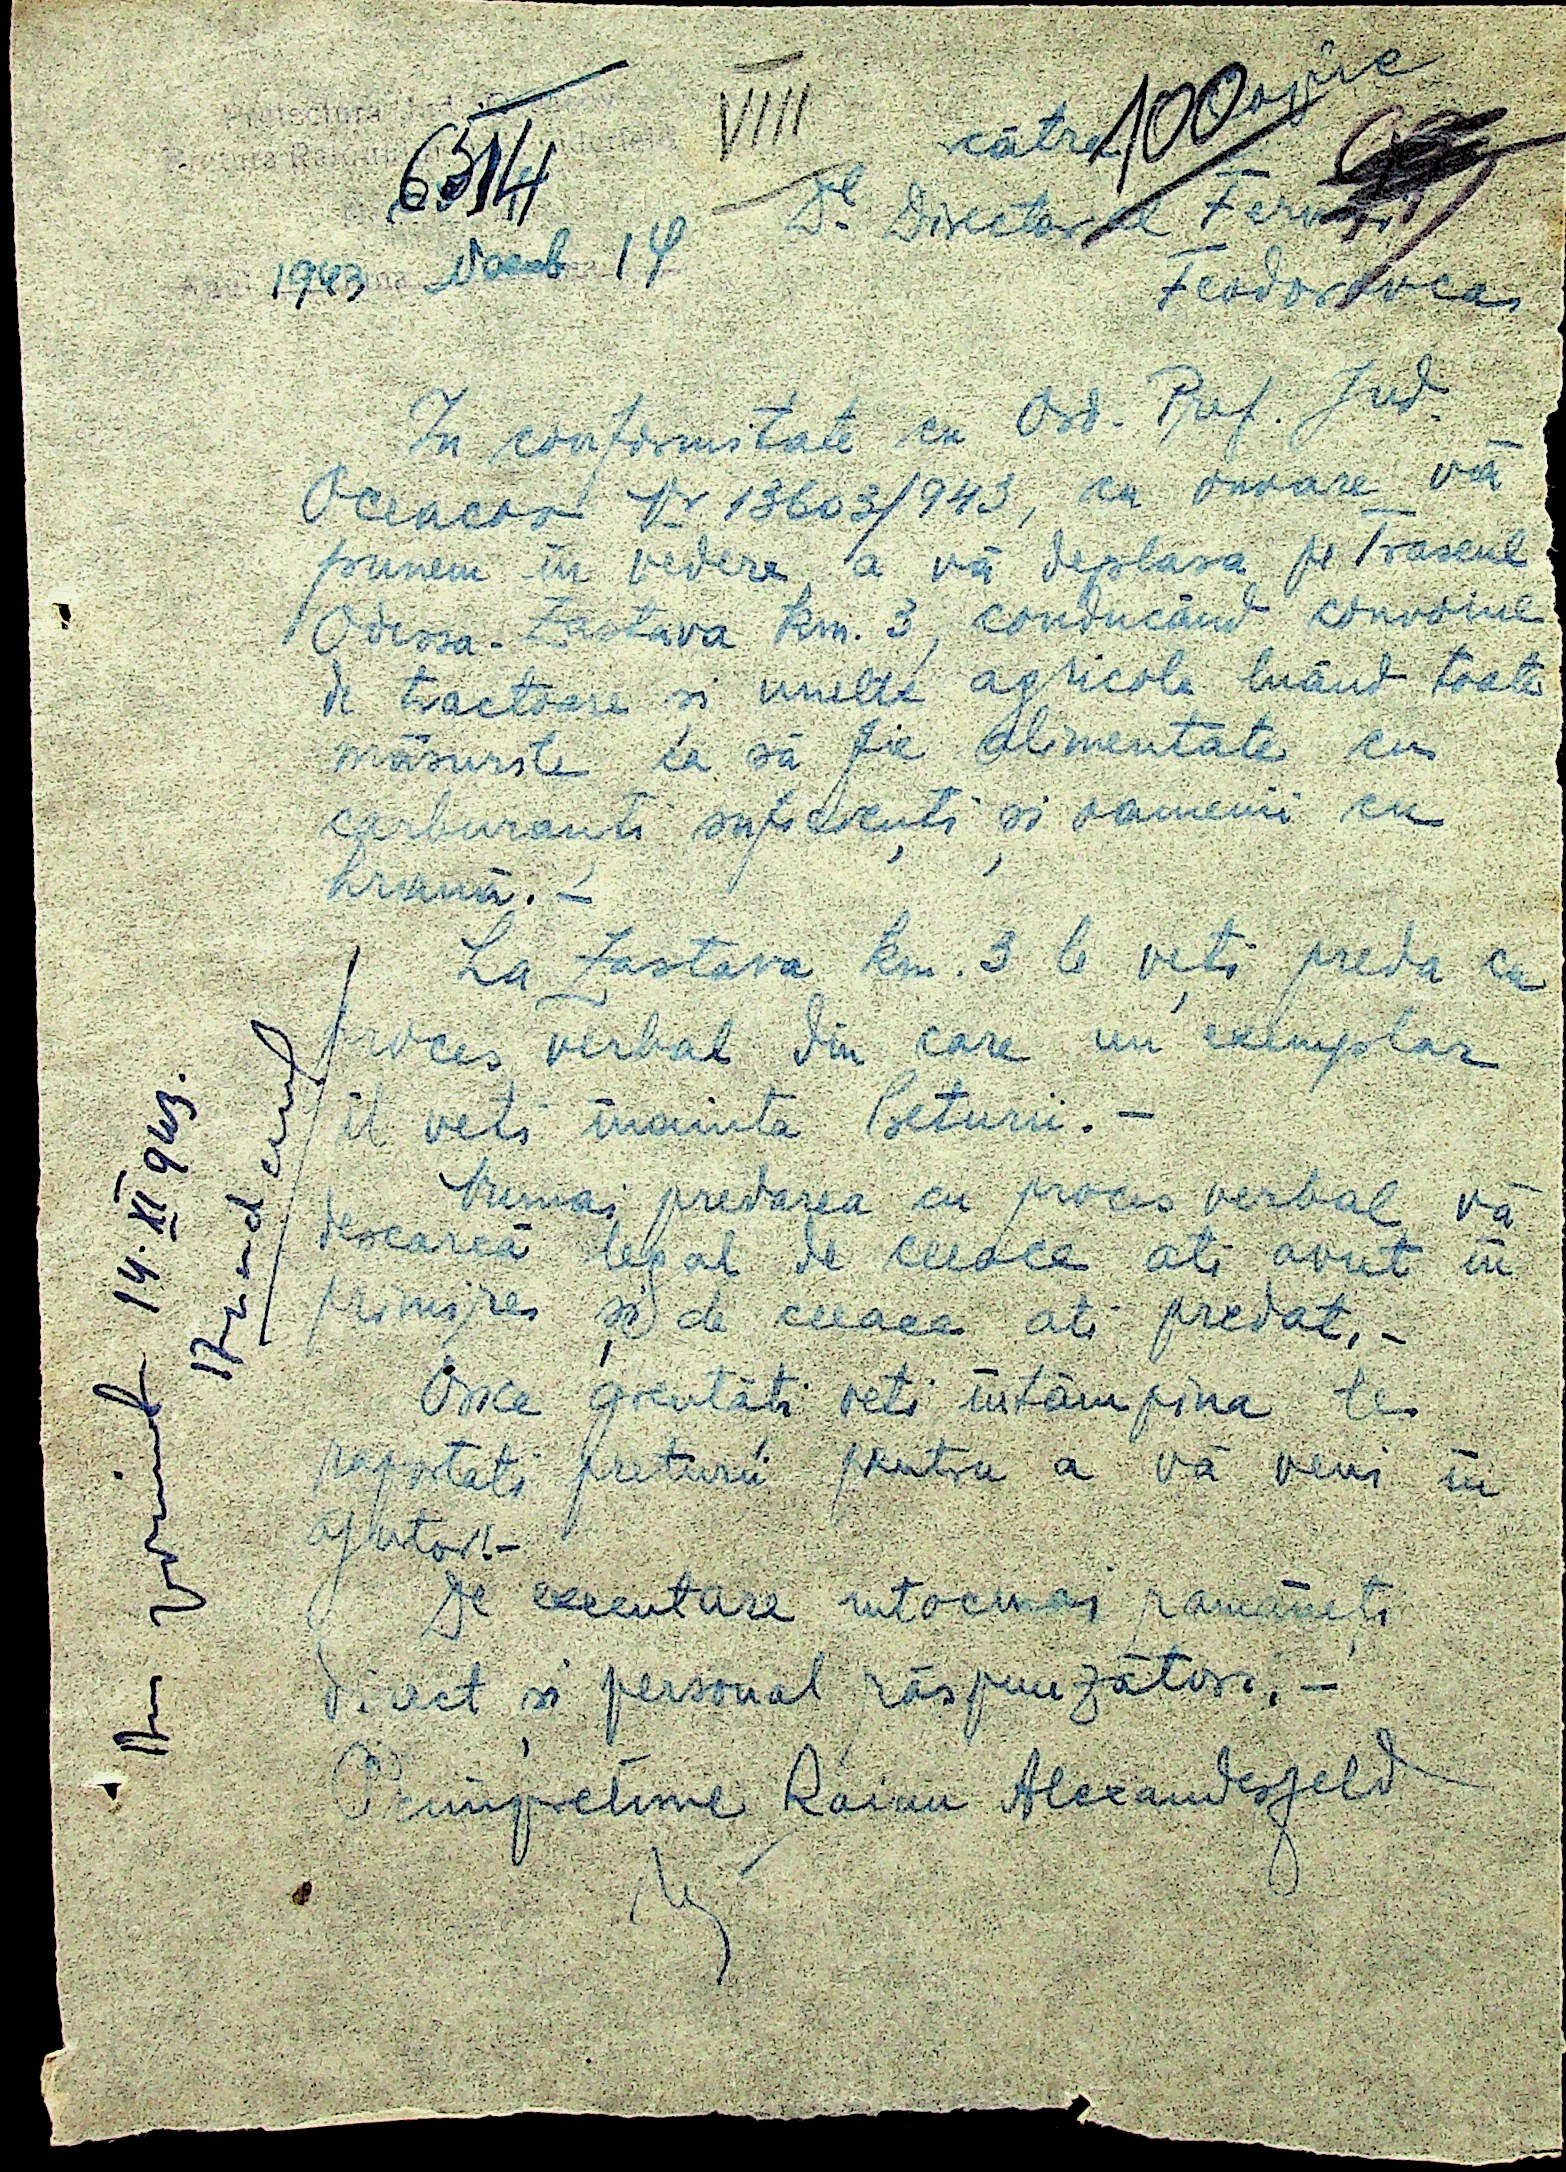 Prefectura Jud. Oceacov
Pretura Raionului Alexanderfeld
6514
1943 Noemb 14
VIIII
100
Copie
către
Dl. Directorul Fermei
Feodorovca
In conformitate cu Ord. Pref. Jud.
Oceacov Nr 13603/943, cu onoare vă
punem în vedere, a vă deplasa pe Traseul
Odessa-Zastava km. 3, conducând convoiul
de tractoare și unelte agricole luând toate
măsurile ca să fie alimentate cu
carburanti suficenți și oamenii cu
hrană.-
La Zastava km. 3 le veți preda cu
proces verbal din care un exemplar
il veti înainta Preturii.-
Numai predarea cu proces verbal vă
descarcă legal de ceeace ati avut in
primire și de ceeace ati predat.-
Orice greutăți veti întâmpina le
raportati preturii pentru a vă veni in
ajutor.-
De executare intocmai ramâneți
direct și personal răspunzători.-
Primpreture Raion Alexanderfeld
Am primit 14.XI 943.